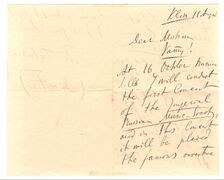 Dear
At 16 October
I will conduct
the first Concert
of the Imperial
Russian Music Society,
and in this Concert
it will be played
the famous overture